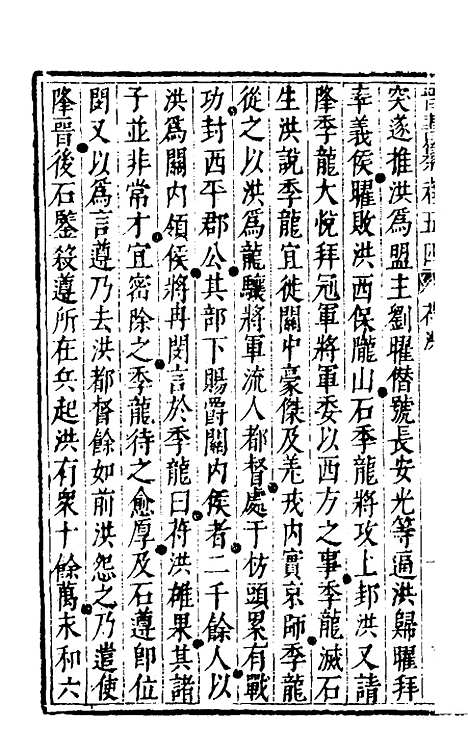 突遂推洪爲盟主劉曜僣號長安光等逼洪歸曜拜
率義侯曜敗洪西保隴山石季龍將攻上邽洪又請
降季龍大悅拜冠軍將軍委以西方之事季龍滅石
生洪說季龍宜徙關中豪傑及羌戎內實京師季龍
從之以洪爲龍驤將軍流人都督處于枋頭累有戰
功封西平郡公其部下賜爵關內侯者二千餘人以
洪爲關內領侯將冉閔言於季龍曰苻洪雄果其諸
子並非常才宜密除之季龍待之愈厚及石遵卽位
閔又以爲言遵乃去洪都督餘如前洪怨之乃遣使
降晉後石鑒殺遵所在兵起洪有衆十餘萬未和六